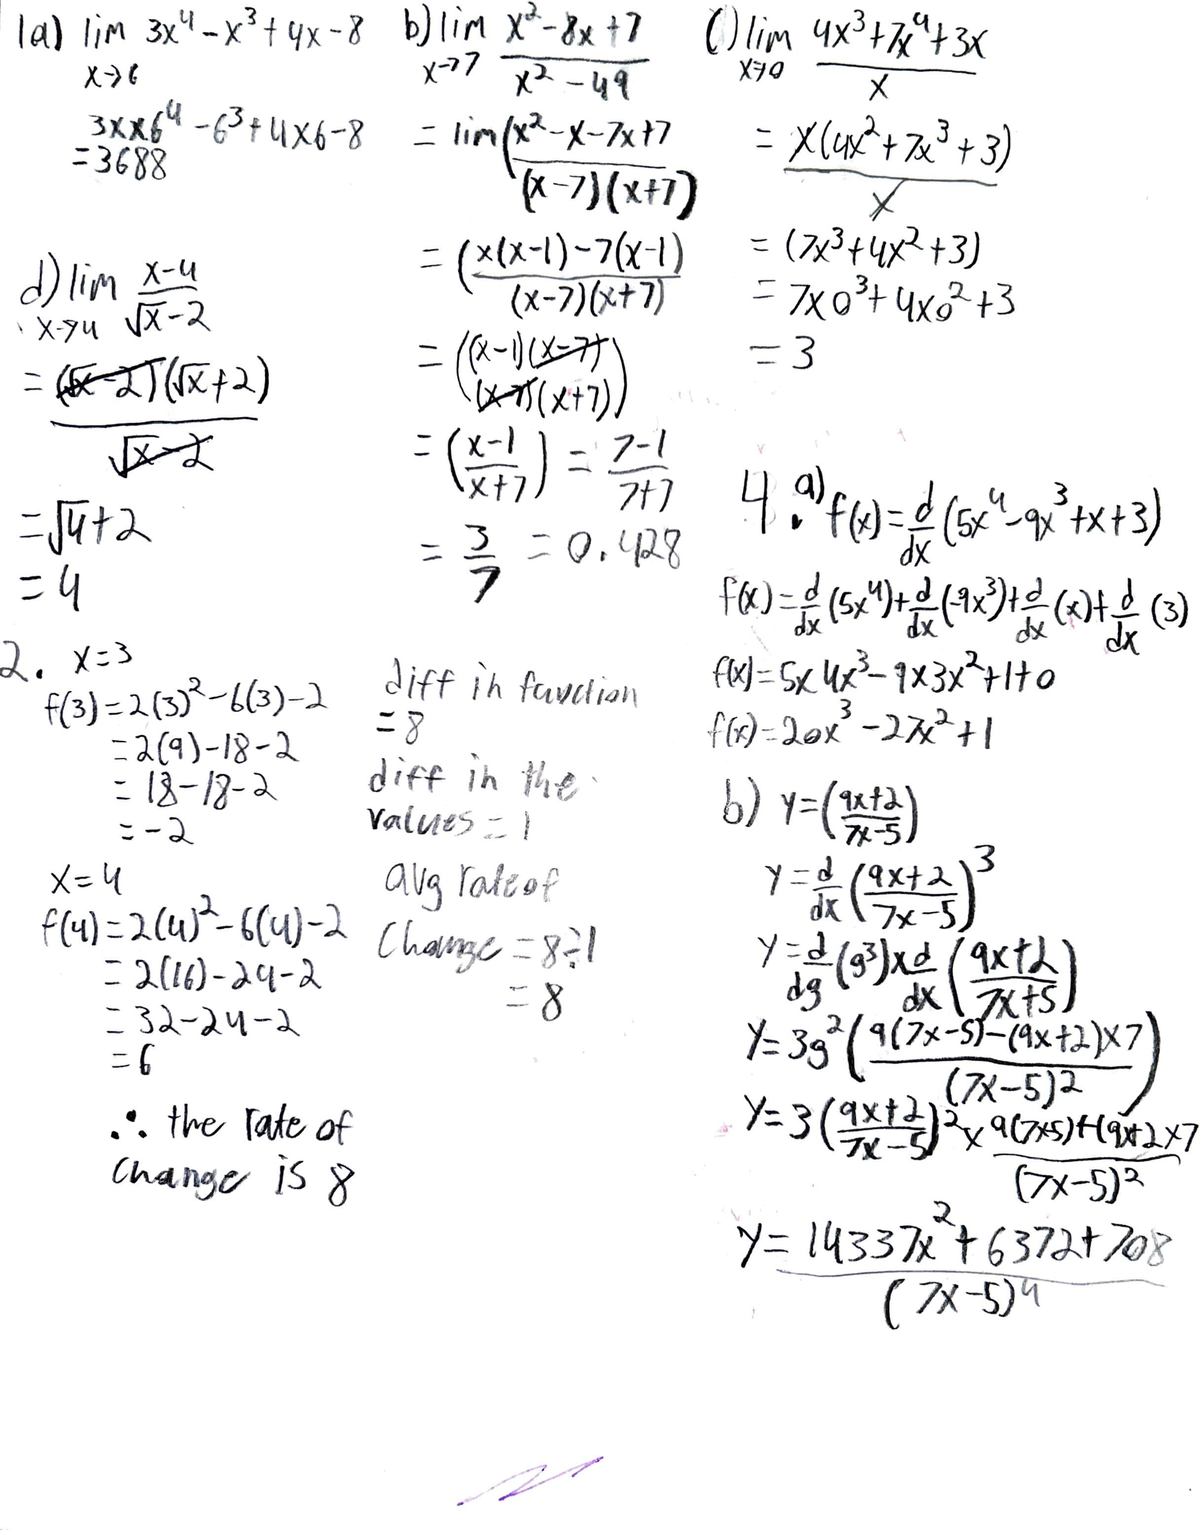 1a) lim 3x⁴ - x³ + 4x - 8
x→6
3xx6⁴ - 6³ + 4x6 - 8
= 3688
b) lim (x² - 8x + 7)/(x² - 49)
x→7
= lim (x² - x - 7x + 7)/((x-7)(x+7))
= (x(x-1) - 7(x-1))/((x-7)(x+7))
= ((x-1)(x-7))/((x-7)(x+7))
= (x-1)/(x+7) = (7-1)/(7+7)
= 3/7 = 0.428
c) lim (4x³ + 7x⁴ + 3x)/x
x→0
= x(4x² + 7x³ + 3)/x
= (7x³ + 4x² + 3)
= 7x0³ + 4x0² + 3
= 3
d) lim (x-4)/(√x - 2)
x→4
= (√x - 2)(√x + 2)/(√x - 2)
= √4 + 2
= 4
2. x=3
f(3) = 2(3)² - 6(3) - 2
= 2(9) - 18 - 2
= 18 - 18 - 2
= -2
x=4
f(4) = 2(4)² - 6(4) - 2
= 2(16) - 24 - 2
= 32 - 24 - 2
= 6
∴ the rate of
change is 8
diff in function
= 8
diff in the
values = 1
avg rate of
Change = 8÷1
= 8
4. a) f(x) = d/dx (5x⁴ - 9x³ + x + 3)
f(x) = d/dx (5x⁴) + d/dx (-9x³) + d/dx (x) + d/dx (3)
f(x) = 5x4x³ - 9x3x² + 1 + 0
f(x) = 20x³ - 27x² + 1
b) y = ((9x+2)/(7x-5))
y = d/dx ((9x+2)/(7x-5))³
y = d/dg (g³) x d/dx ((9x+2)/(7x+5))
y = 3g² ((9(7x-5) - (9x+2)x7)/(7x-5)2)
y = 3 ((9x+2)/(7x-5))² x (9(7x5)+(9x+2x7)/(7x-5)²
y = (14337x² + 6372 + 708)/(7x-5)⁴